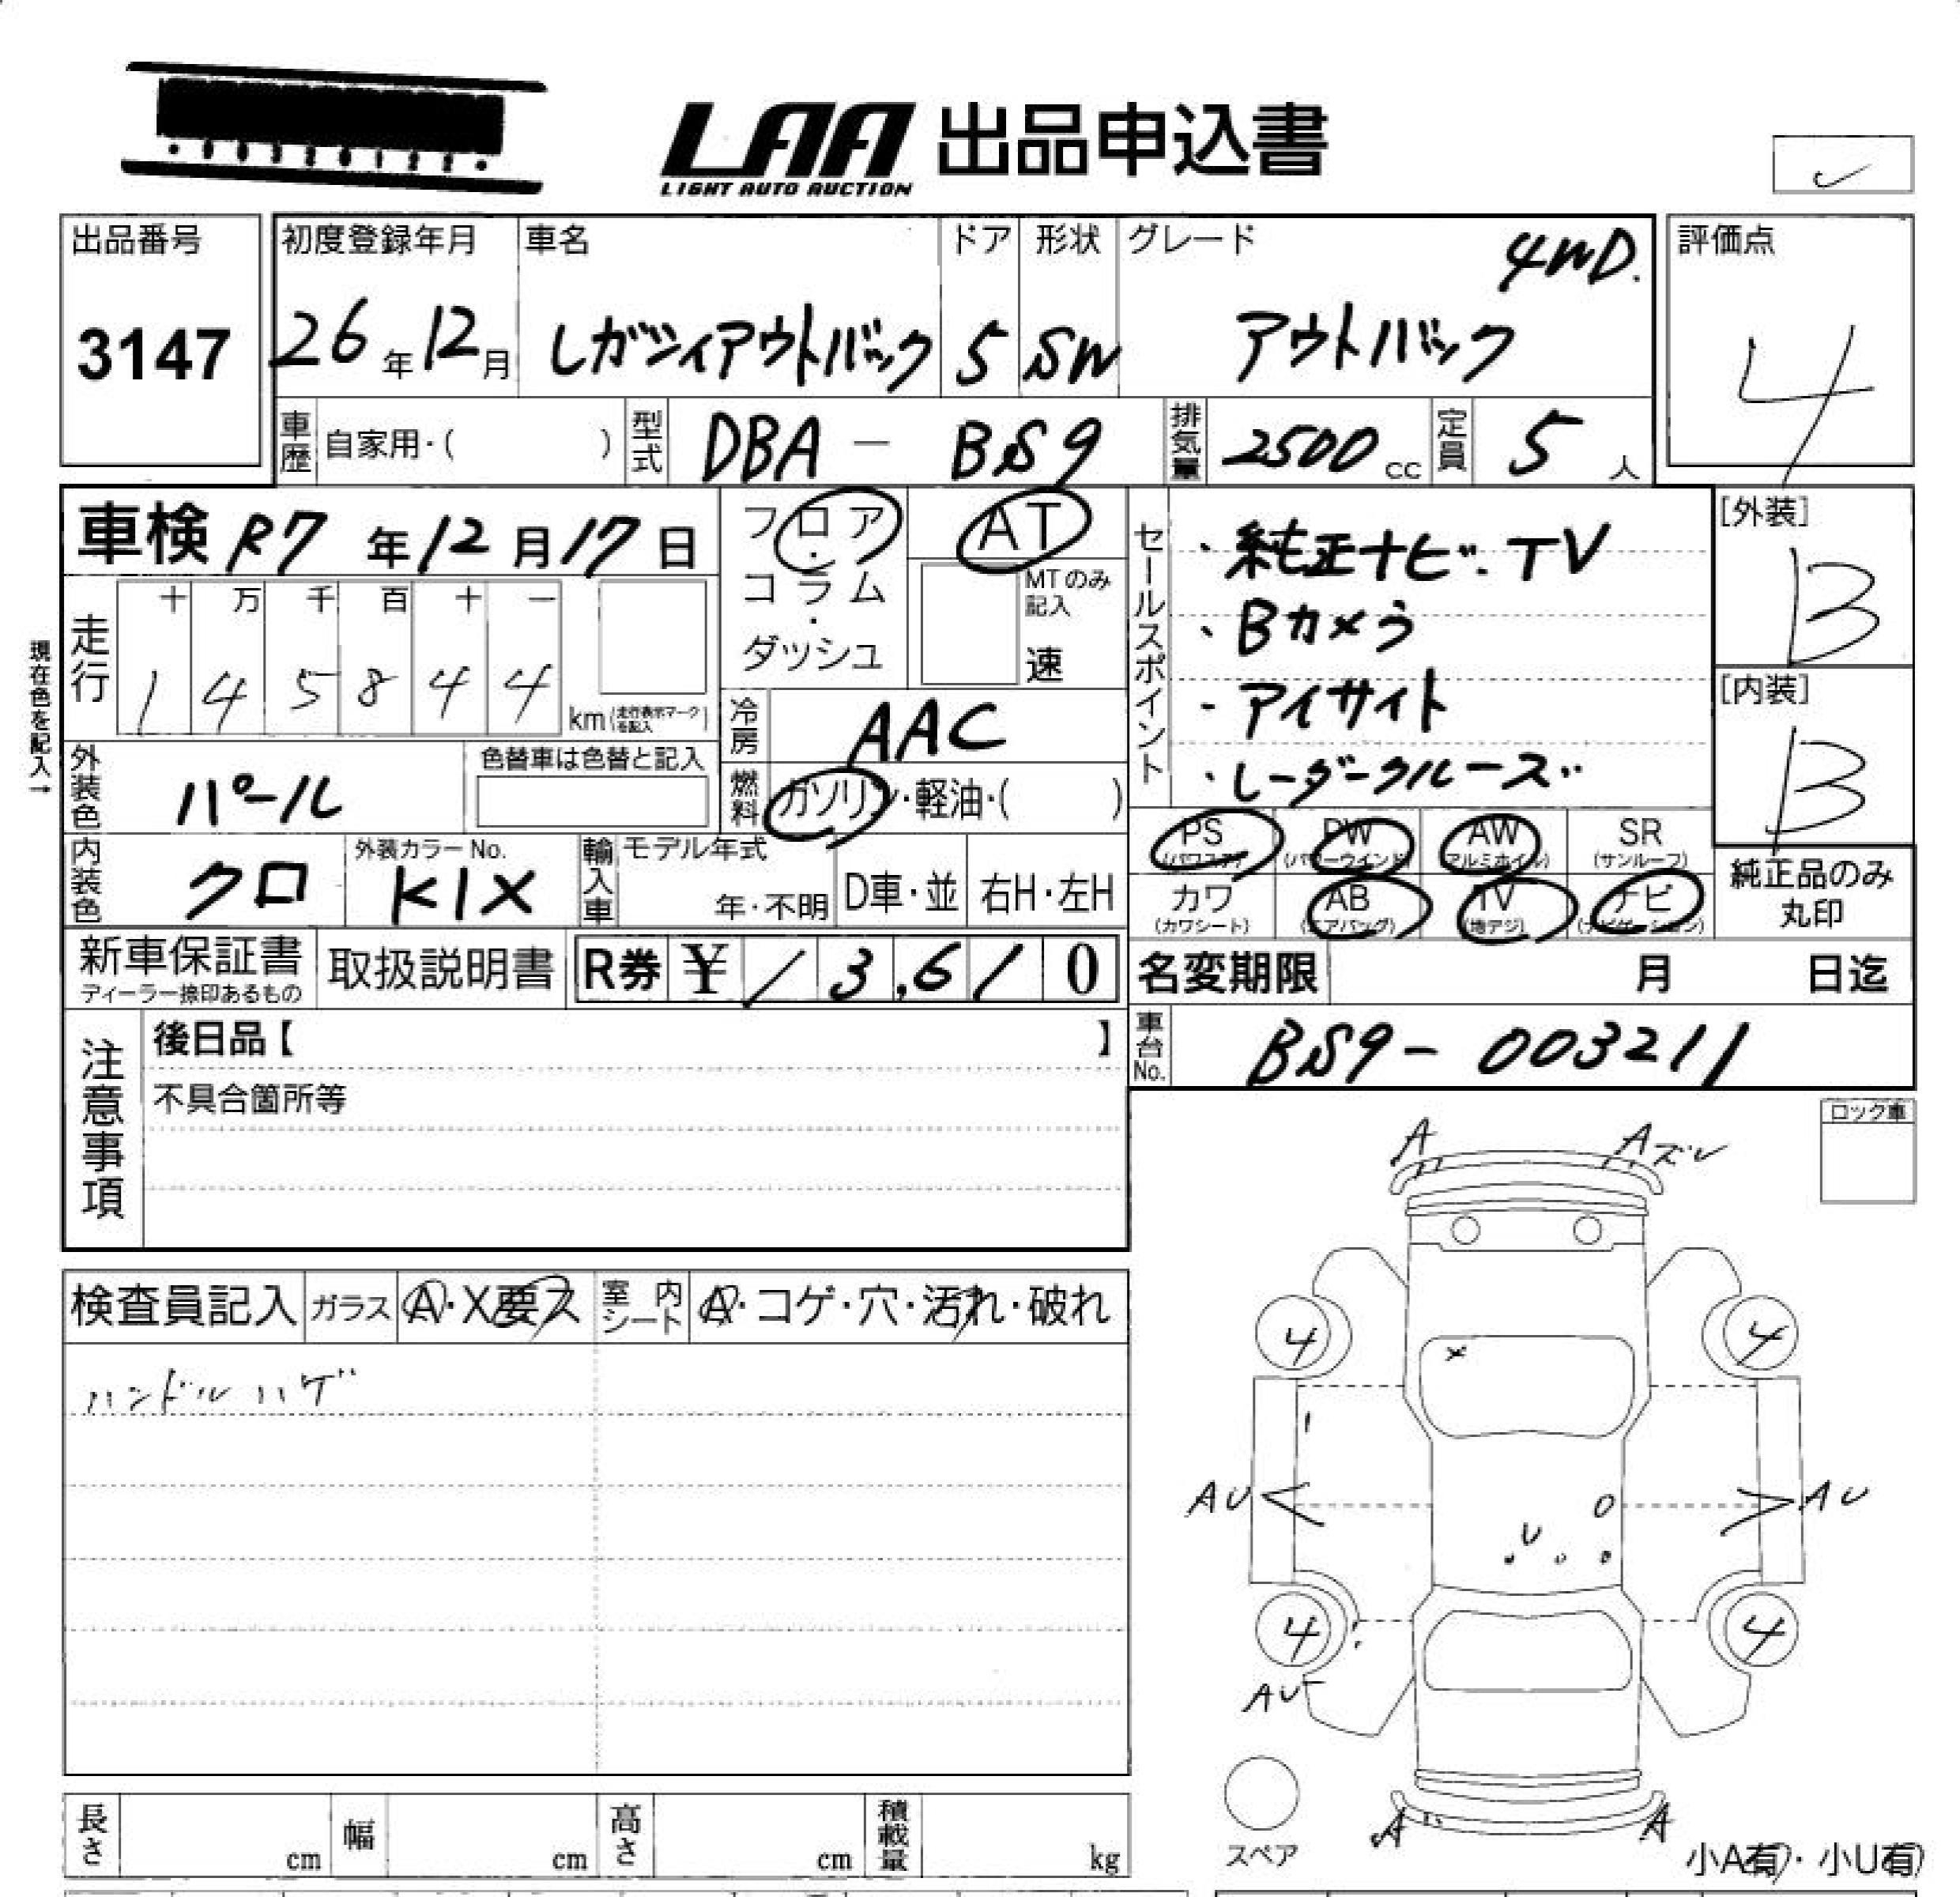 LAA 出品申込書
LIGHT AUTO AUCTION
出品番号
3147
初度登録年月
26年12月
車名
レガシィアウトバック
ドア
5
形状
SW
グレード
4WD.
アウトバック
評価点
4
車歴 自家用・( )
型式 DBA - BS9
排気量 2500cc
定員 5人
車検 R7年12月17日
フロア・コラム・ダッシュ
AT
MTのみ記入
速
走行
十 万 千 百 十 一
1 4 5 8 4 4 km(走行表示マークを記入)
現在色を記入→
冷房 AAC
燃料 ガソリン・軽油・( )
外装色 パール
色替車は色替と記入
内装色 クロ
外装カラーNo.
K1X
輸入車 モデル年式
年・不明
D車・並
右H・左H
セールスポイント
・純正ナビ.TV
・Bカメラ
・アイサイト
・レーダークルーズ
[外装]
B
[内装]
B
PS PW AW SR
(パワステ) (パワーウインド) (アルミホイル) (サンルーフ)
カワ AB TV ナビ
(カワシート) (エアバッグ) (地デジ) (ナビゲーション)
純正品のみ
丸印
新車保証書
ディーラー捺印あるもの
取扱説明書
R券 ¥ 13,610
名変期限 月 日迄
車台No. BS9-003211
注意事項
後日品【 】
不具合箇所等
ロック車
検査員記入
ガラス A・X要ス
室内シート A・コゲ・穴・汚れ・破れ
ハンドルハゲ
A Aズレ
4 4
x
AU AU
U
4 4
AU
スペア
A A
小A有・小U有
長さ cm
幅 cm
高さ cm
積載量 kg